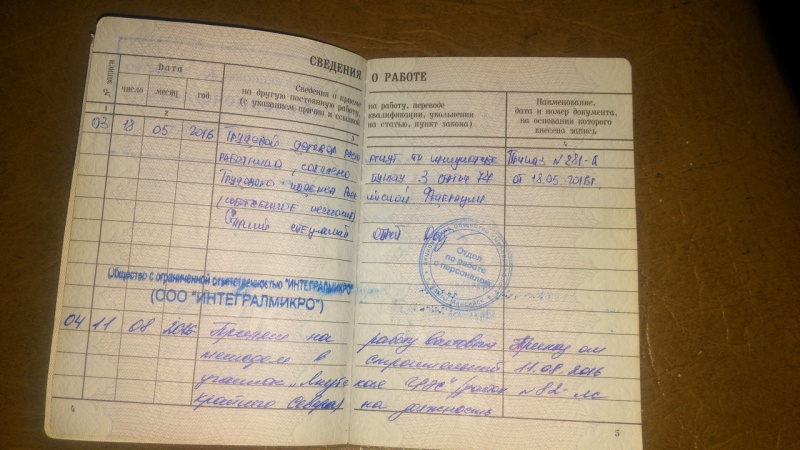 СВЕДЕНИЯ О РАБОТЕ
№ записи
Дата
число
месяц
год
Сведения о приеме
на работу, переводе
на другую постоянную работу,
квалификации, увольнении
(с указанием причин и ссылкой
на статью, пункт закона)
Наименование,
дата и номер документа,
на основании которого
внесена запись
1 2 3 4
03 18 05 2016 Трудовой договор расторгнут по инициативе Приказ №281-к
работника, согласно пункту 3 статьи 77 от 18.05.2016г
Трудового кодекса Российской Федерации
(собственное желание)
Отдел
по работе
с персоналом
Общество с ограниченной ответственностью "ИНТЕГРАЛМИКРО"
(ООО "ИНТЕГРАЛМИКРО")
04 11 08 2016 Принят на работу вахтовым Приказ от
методом в строительный 11.08.2016
участок „Якутская ГРЭС" район №82-лс
крайнего Севера) на должность
4
5